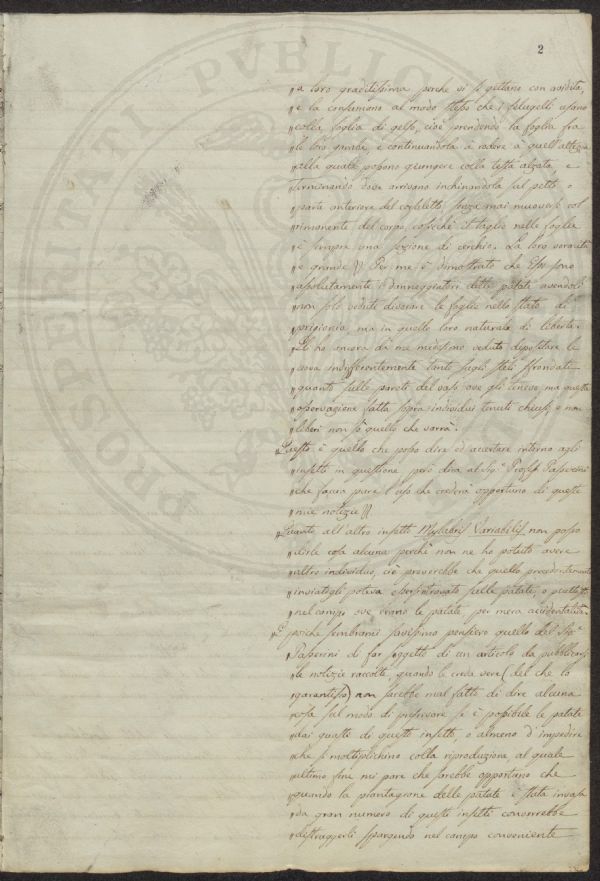 2
"a loro graditissima perche vi si gettano con avidità,
"e la consumano al modo stesso che i filugelli usano
"colla foglia di gelso, cioè prendendo la foglia fra
"le loro gambe, e continuandola a rodere a quell'altezza
"alla quale possono giungere colla testa alzata, e
"terminando dove arrivano inchinandola sul petto o
"parte anteriore del corsaletto senza mai muoversi col
"rimanente del corpo, cosicchè il taglio nelle foglie
"è sempre una sezione di cerchio. La loro voracità
"è grande)) Per me è dimostrato che Essi sono
"assolutamente i danneggiatori delle patate avendoli
"non solo veduti divorare le foglie nello stato di
"prigionia ma in quello loro naturale di libertà.
"Gli ho ancora da me medesimo veduto depositare le
"uova indifferentemente tanto sugli steli sfrondati
"quanto sulle pareti del vaso ove gli tenevo, ma questa
"osservazione fatta sopra individui tenuti chiusi, e non
"liberi non so quello che varrà.
"Questo è quello che posso dire ed accertare intorno agli
"insetti in questione però dirà al Sig.r Profess Passerini
"che faccia pure l'uso che crederà opportuno di queste
"mie notizie))
"Quanto all'altro insetto Mylabris Variabilis non posso
"dirle cosa alcuna perchè non ne ho potuto avere
"altro individuo, ciò proverebbe che quello precedentemente
"inviatogli poteva essersi trovato sulle patate, o piuttosto
"nel campo ove erano le patate per mera accidentalità.
"E poiche sembrami savissimo pensiero quello del Sig.r
"Passerini di far soggetto di un articolo da pubblicarsi
"le notizie raccolte, quando le creda vere (del che lo
"garantisco) non sarebbe mal fatto di dire alcuna
"cosa sul modo di preservare se è possibile le patate
"dai guasti di questo insetto, o almeno d'impedire
"che si moltiplichino colla riproduzione al quale
"ultimo fine mi pare che sarebbe opportuno che
"quando la piantagione delle patate è stata invasa
"da gran numero di questi insetti converrebbe
"distruggerli spargendo nel campo conveniente
PROSPERITATI PUBLICAE